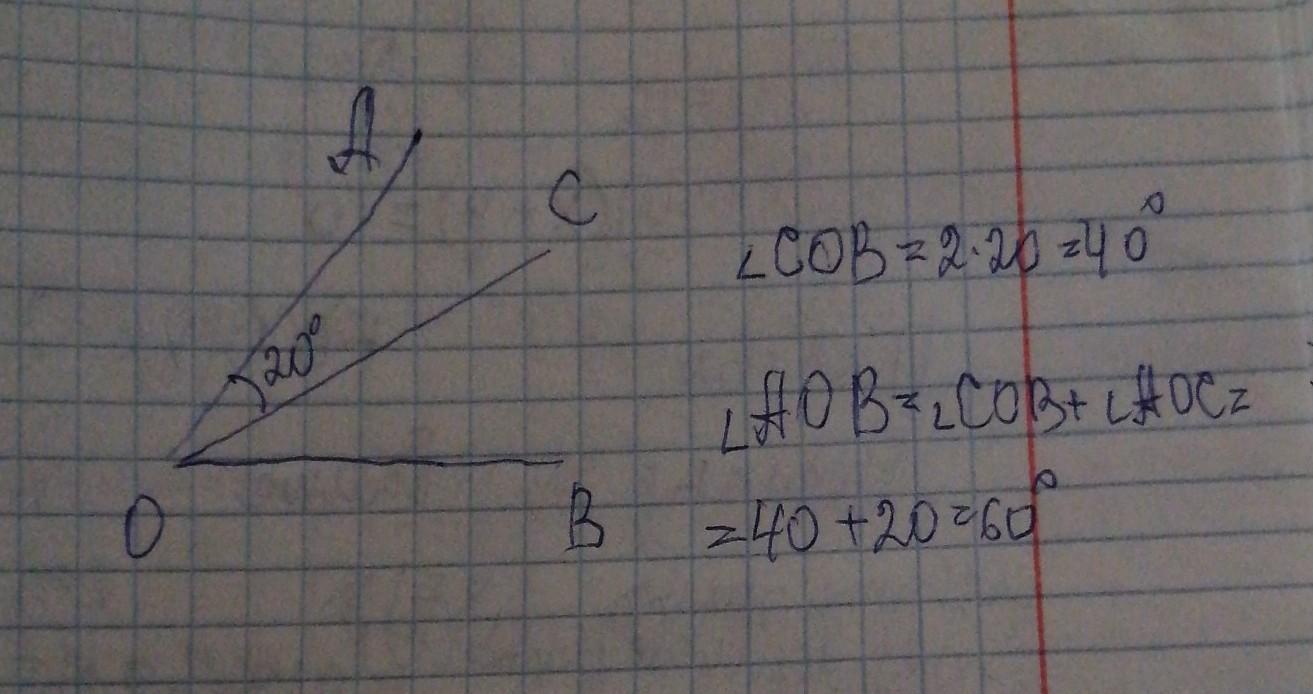 A
C
20°
O
B
∠COB = 2·20 = 40°
∠AOB = ∠COB + ∠AOC =
= 40 + 20 = 60°